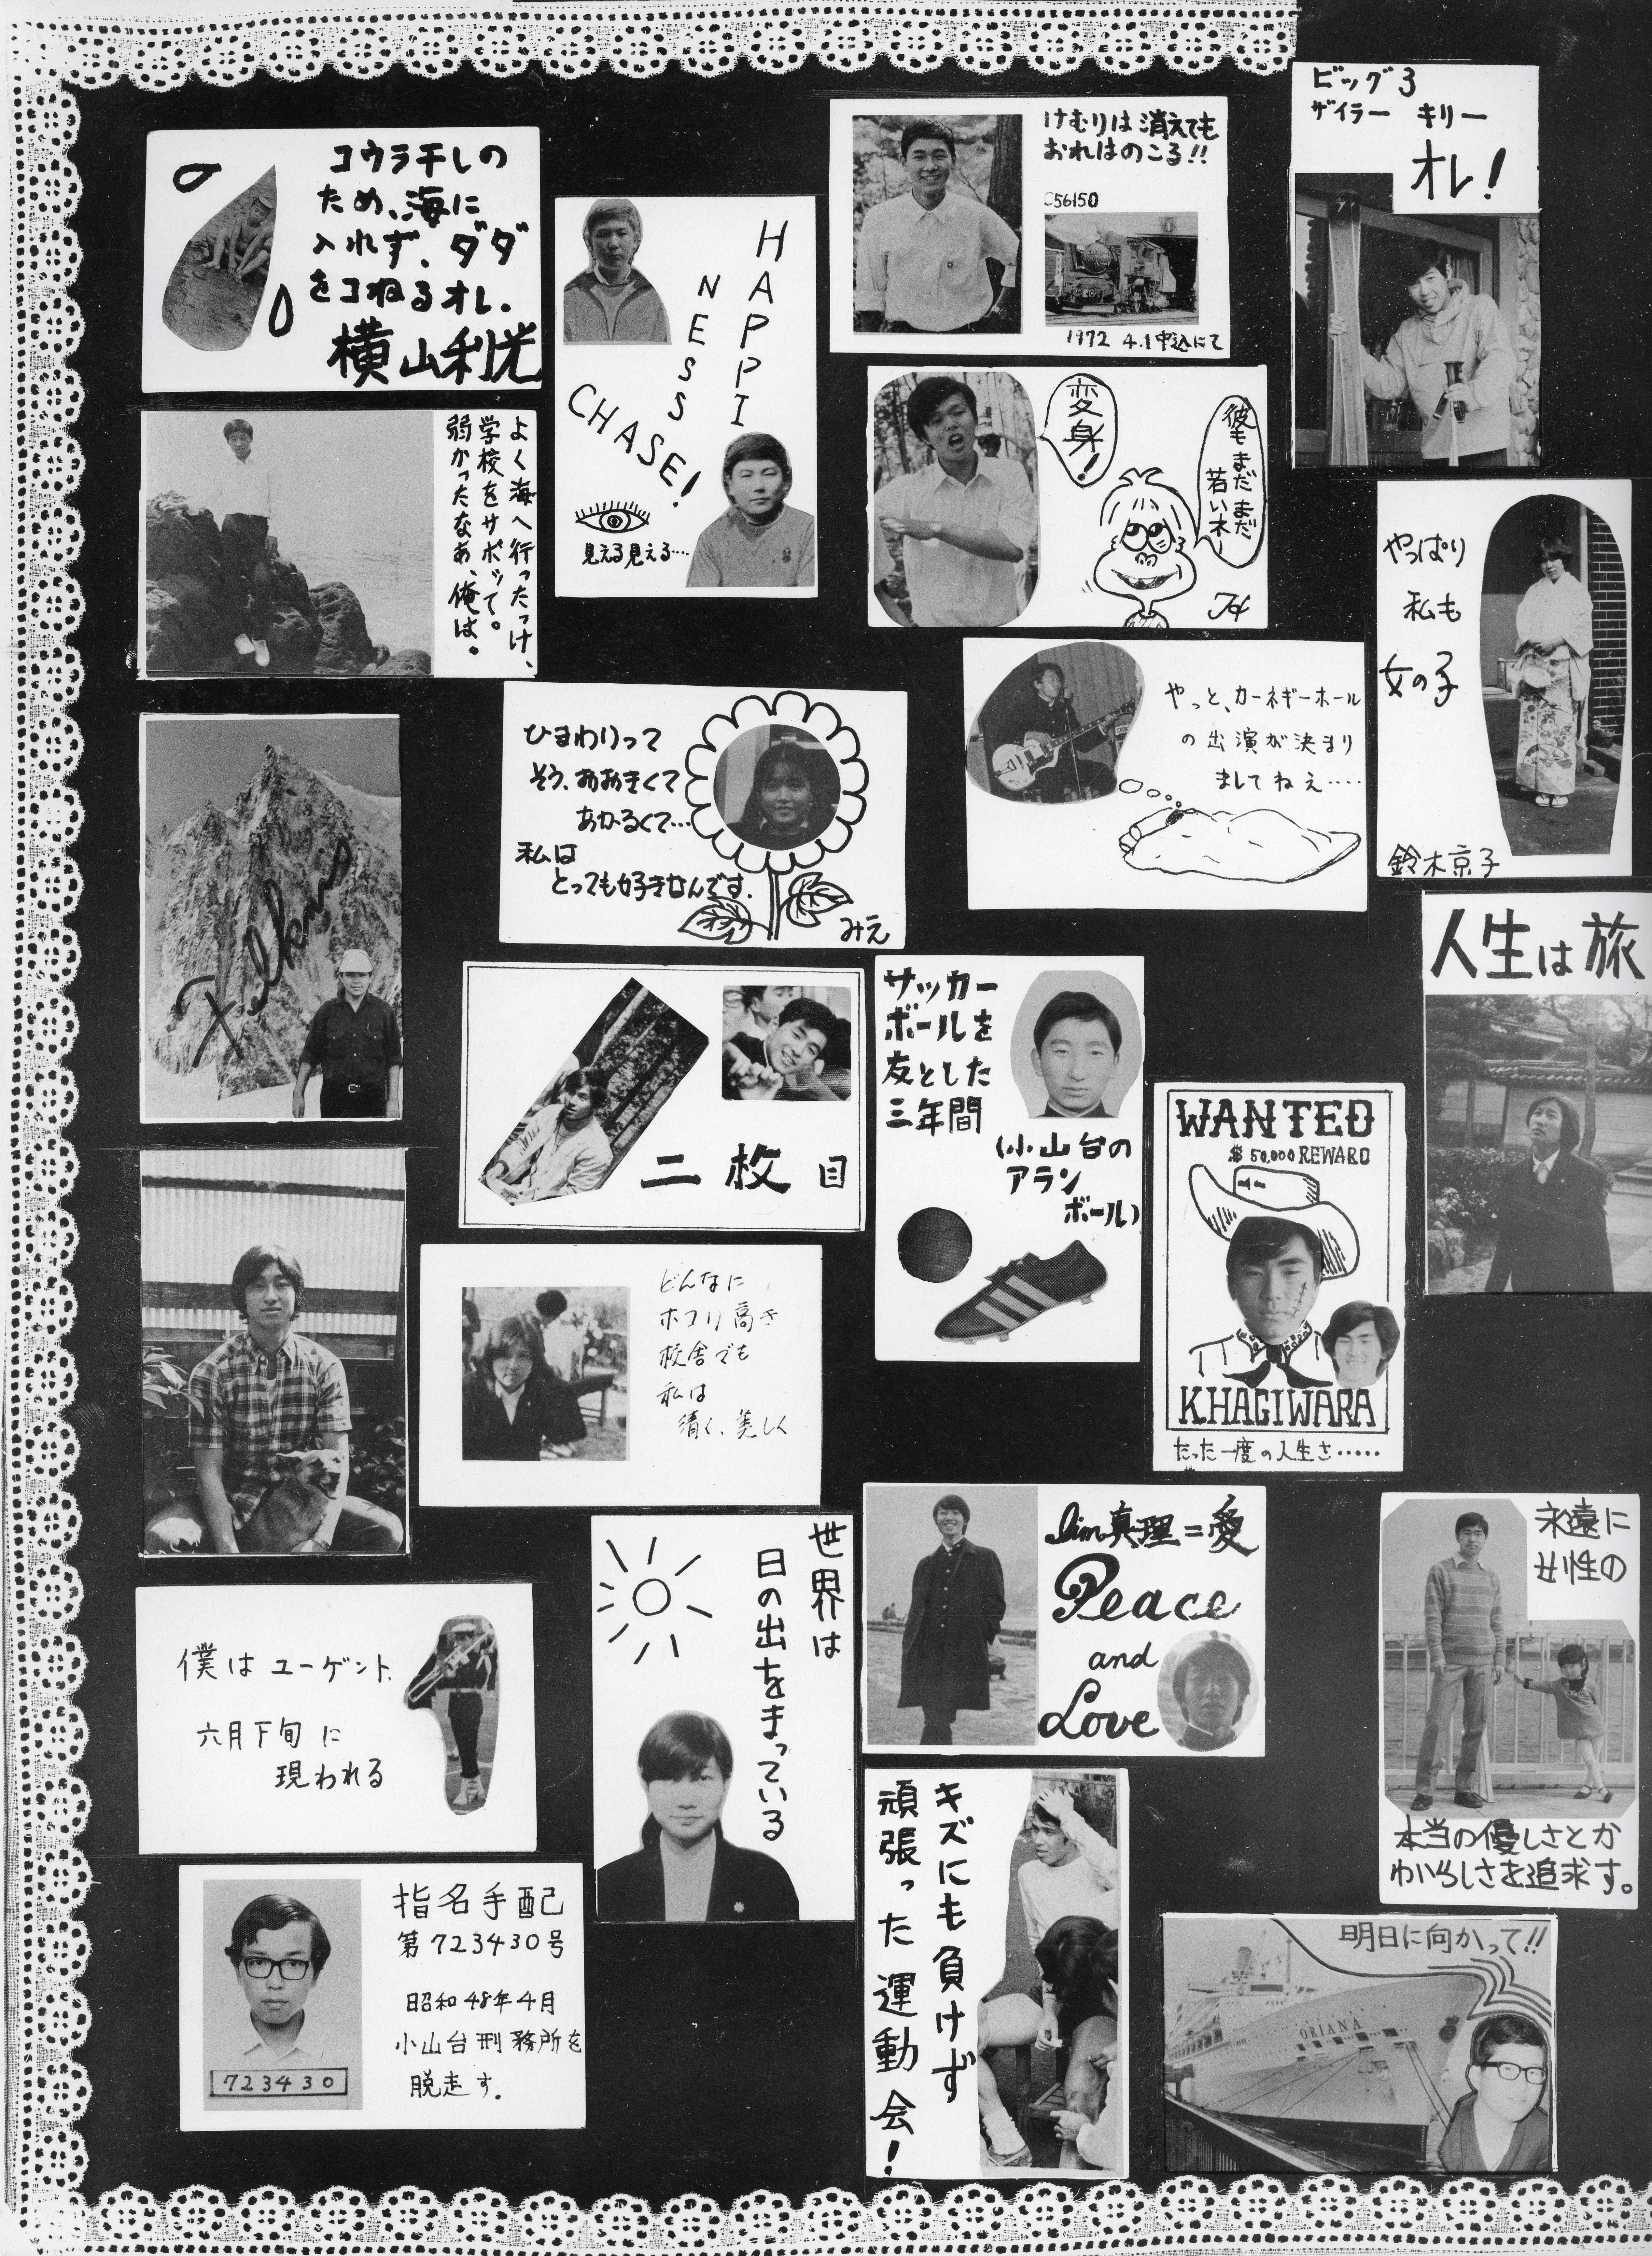 コウラ干しの
ため、海に
入れず、ダダ
をコねるオレ.
横山利光
HAPPI
NESS
CHASE!
見える見える‥‥
けむりは消えても
おれはのこる!!
C56150
1972 4.1 中込にて
ビッグ3
ザイラー キリー
オレ!
よく海へ行ったっけ、
学校をサボッて。
弱かったなあ、俺は。
変身!
彼もまだまだ
若いネー
やっぱり
私も
女の子
鈴木京子
ひまわりって
そう、おおきくて
あかるくて…
私は
とっても好きなんです.
みえ
やっと、カーネギーホール
の出演が決まり
ましてねえ‥‥
人生は旅
二枚目
サッカー
ボールを
友とした
三年間
(小山台の
アラン
ボール)
WANTED
$50,000 REWARD
K.HAGIWARA
たった一度の人生さ‥‥‥
ORIANA
どんなに
ホコリ高き
校舎でも
私は
清く、美しく
僕はユーゲント.
六月下旬に
現われる
世界は
日の出をまっている
真理=愛
Peace
and
Love
永遠に
女性の
本当の優しさとか
わいらしさを追求す。
指名手配
第723430号
昭和48年4月
小山台刑務所を
脱走す.
723430
キズにも負けず
頑張った運動会!
明日に向かって!!